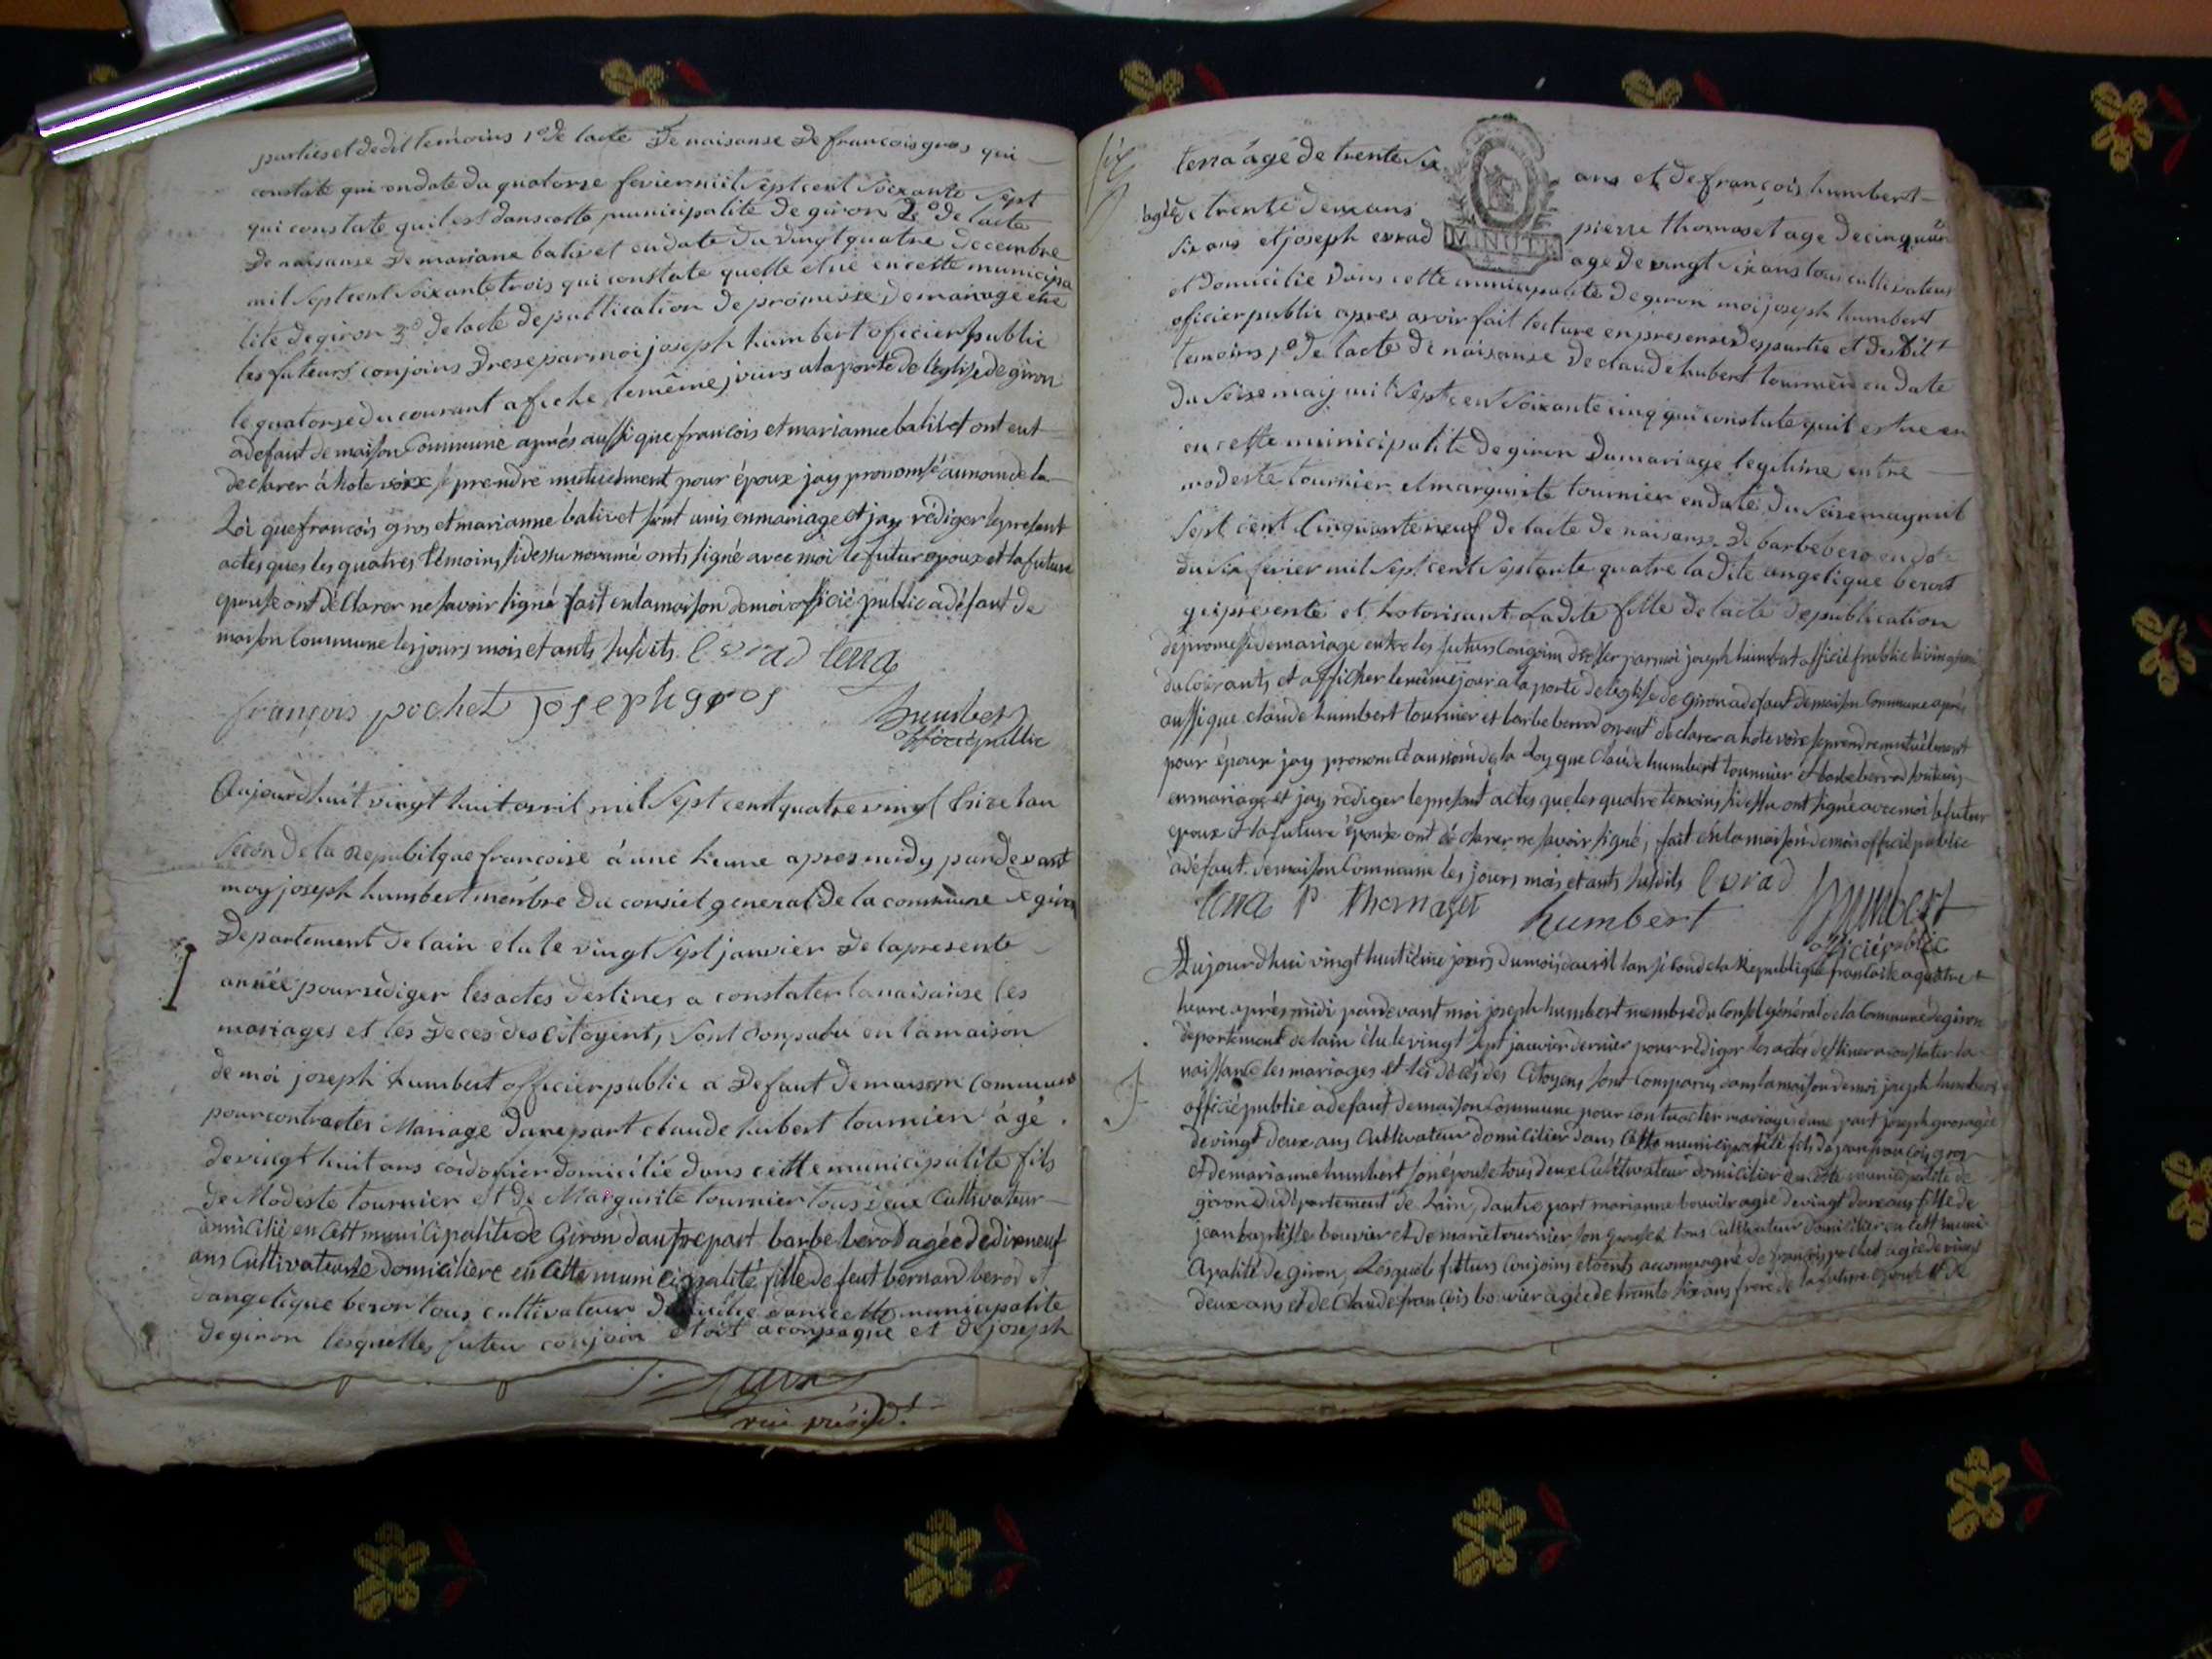 parties et dedit temoins 1º de lacte de naisanse de francois gros qui
constate qui en date du quatorze fevier mil sept cent soixante sept
qui constate quil est dans cette municipalite de giron 2º de lacte
de naisanse de mariane balivet en date du vingt quatre decembre
mil sept cent soixante trois qui constate quelle et né en cette municipa
lite de giron 3º de lacte de publication de promesse de mariage entre
les futeurs conjoins drese par moi joseph humbert oficier public
le quatorse du courant afiche le même jours a la porte de leglise de giron
a defaut de maison Commune aprés aussi que francois et marianne balivet ont eut
declarer à hote voix se prendre mutuelment pour époux jay prononsé au nom de la
Loi que francois gros et marianne balivet sont unis en mariage et jay rédiger le present
actes ques les quatres témoins sidessu nommé onts signé avec moi le futur epoux et la future
epouse ont déclarer ne savoir signé fait en la maison de moi officié public a défaut de
maison Commune les jours mois et ants susdits. Evrad terra
françois pochet joseph gros
humbert
officié public
Aujourdhuit vingt huit avril mil sept cent quatre vingt treize lan
second de la Republique francoise à une heure apres midy pardevant
moy joseph humbert membre du conseil general de la commune de giron
Departement de lain elu le vingt sept janvier de la presente
année pour rédiger les actes destines a constater la naisanse les
mariages et les deces des Citoyents, sont conparu en la maison
de moi joseph humbert officier public a defaut de maison commune
pour contracter Mariage dune part claude hubert tournier âgé
de vingt huit ans cordonier domicilie dans cette municipalite fils
de Modeste tournier et de Margurite tournier tous deux Cultivateur
domicilié en Cett municipalite de Giron dautre part barbe berod agée de dixneuf
ans Cultivateuse domicilière en Cette municipalité fille de feut bernard berod et
dangelique beron tous cultivateur domicilie dans cette municipalite
de giron lesquelles futeu conjoin etoit aconpagné et de joseph
vice présid.t
six
terra âgé de trente six ans et de françois humbert
agé de trente deux ans pierre thomaset age de cinquan
six ans et joseph evrad age de vingt six ans tous cultivateus
MINUTE
et domicilie dans cette municipalité de giron moi joseph humbert
officier public apres avoir fait lecture en presense des partie et desdit
temoins 1º de lacte de naisanse de claude hubert tournier en date
du seise may mil sept cent soixante cinq qui constate quil est ne en
en cette municipalite de giron du mariage legitime entre
modeste tournier et margurite tournier en date du seise may mil
sept cent cinquante neuf de lacte de naisanse de barbe bero en date
du six fevier mil sept cent septante quatre la dite angelique berot
qui presente et hotorisant ladite fille de lacte de publication
de promesse de mariage entre les futurs Congoin dresser par moi joseph humbert officié public le vingt
du Courants et afficher le même jour a la porte de léglise de Giron a defaut de maison Commune aprés
aussi que claude humbert tournier et barbe berrod ont eut declarer a hote voix se prendre mutuelment
pour époux jay prononcé au nom de la Loy que Claude humbert tournier et barbe berrod sont unis
en mariage et jay rédiger le present actes que les quatre temoins sidessu ont signé avec moi le futur
epoux et la future épouse ont déclarer ne savoir signé, fait en la maison de moi officié public
à défaut de maison Commune les jours mois et ants susdits Evrad
terra P thomaset humbert humbert
officié public
Aujourdhui vingt huitiéme jours du mois davril lan second de la Republique francaise a quatre
heure aprés midi pardevant moi joseph humbert membre du Conseil général de la Commune de giron
département de lain élu le vingt sept janvier dernier pour rédiger les actes destiner a constater la
naissance les mariages et les décés des Citoyens sont Comparus dans la maison de moi joseph humbert
officié public a defaut de maison Commune pour contracter mariage dune part joseph gros agée
de vingt deux ans Cultivateur domicilier dans Cette municipalité fils de francois gros
et de marianne humbert son épouse tous deux Cultivateur domicilier en Cette municipalité de
giron du département de Lain, dautre part marianne bouvier agée de vingt deux ans fille de
jean baptiste bouvier et de marie tournier son epouse tous Cultivateur domicilier en Cett muni
cipalité de giron, Lesquels futurs Conjoins etoients accompagné de françois pochet agée de vingt
deux ans et de Claude francois bouvier agée de trante six ans frere de la future epouse et de